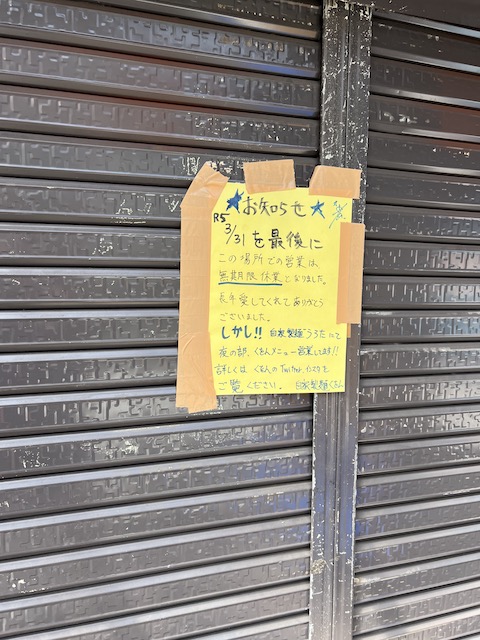 ★お知らせ★
R5
3/31 を最後に
この場所での営業は
無期限休業となりました。
長年愛してくれてありがとう
ございました。
しかし!! 自家製麺うろた にて
夜の部、くをんメニュー営業します!!
詳しくは くをんの Twitter、インスタを
ご覧ください。 自家製麺くをん